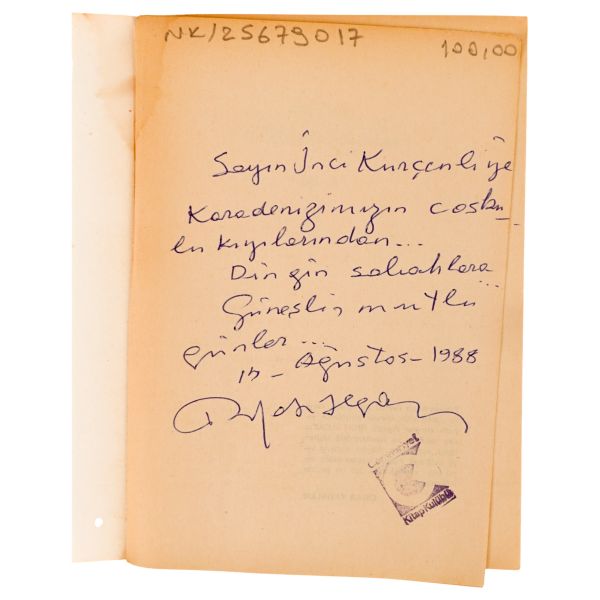 NK/25679017
100,00
Sayın İnci Kurçenli'ye
Karadenizimizin coşku-
lu kıyılarından...
Dingin sabahlara...
Güneşlin mutlu
günler...
Ağustos-1988
Cumhuriyet
Kitap Kulübü